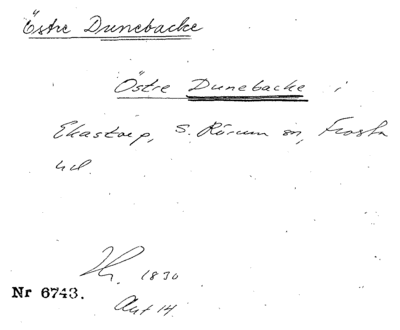 Östre Dunebacke
Östre Dunebacke i
Ekastorp, S. Rörum sn, Frosta
hd.
1830
Nr 6743.
Akt 14